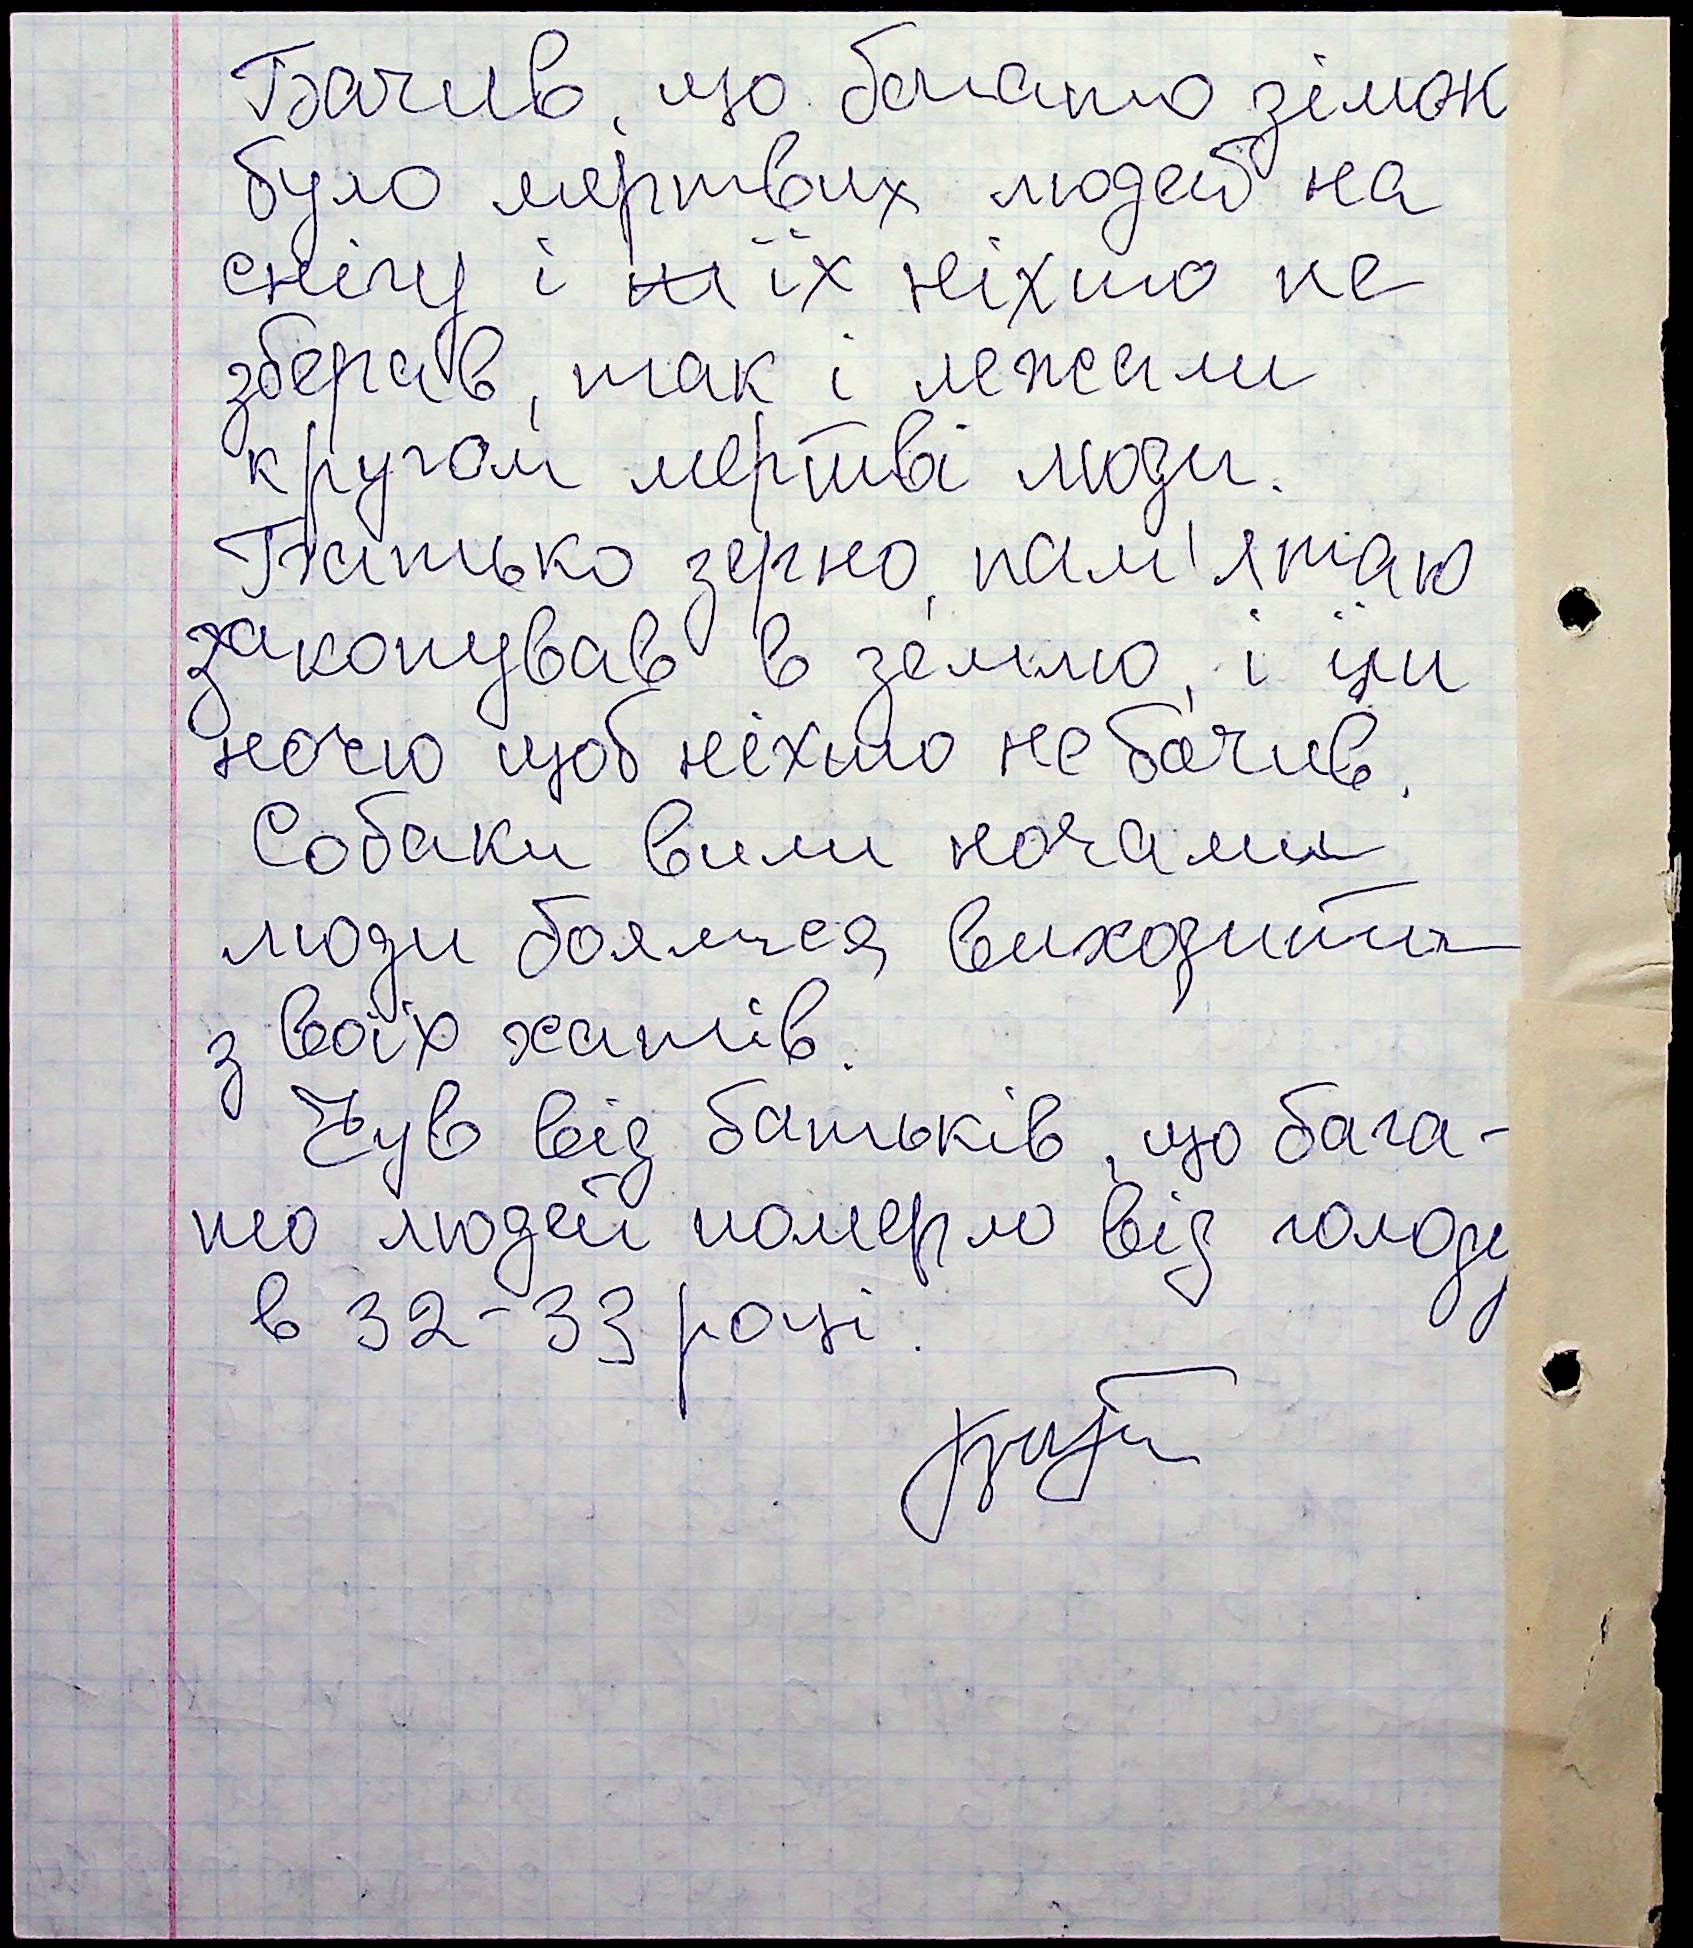 Бачив, що багато зімою
було мертвих людей на
снігу і їх ніхто не
зберав, так і лежали
кругом мертві люди.
Батько зерно, пам'ятаю
закопував в землю, і
ночю щоб ніхто не бачив.
Собаки вили ночами
люди боялися виходити
з воїх хатів.
Чув від батьків, що бага-
то людей померло від голоду
в 32-33 році.